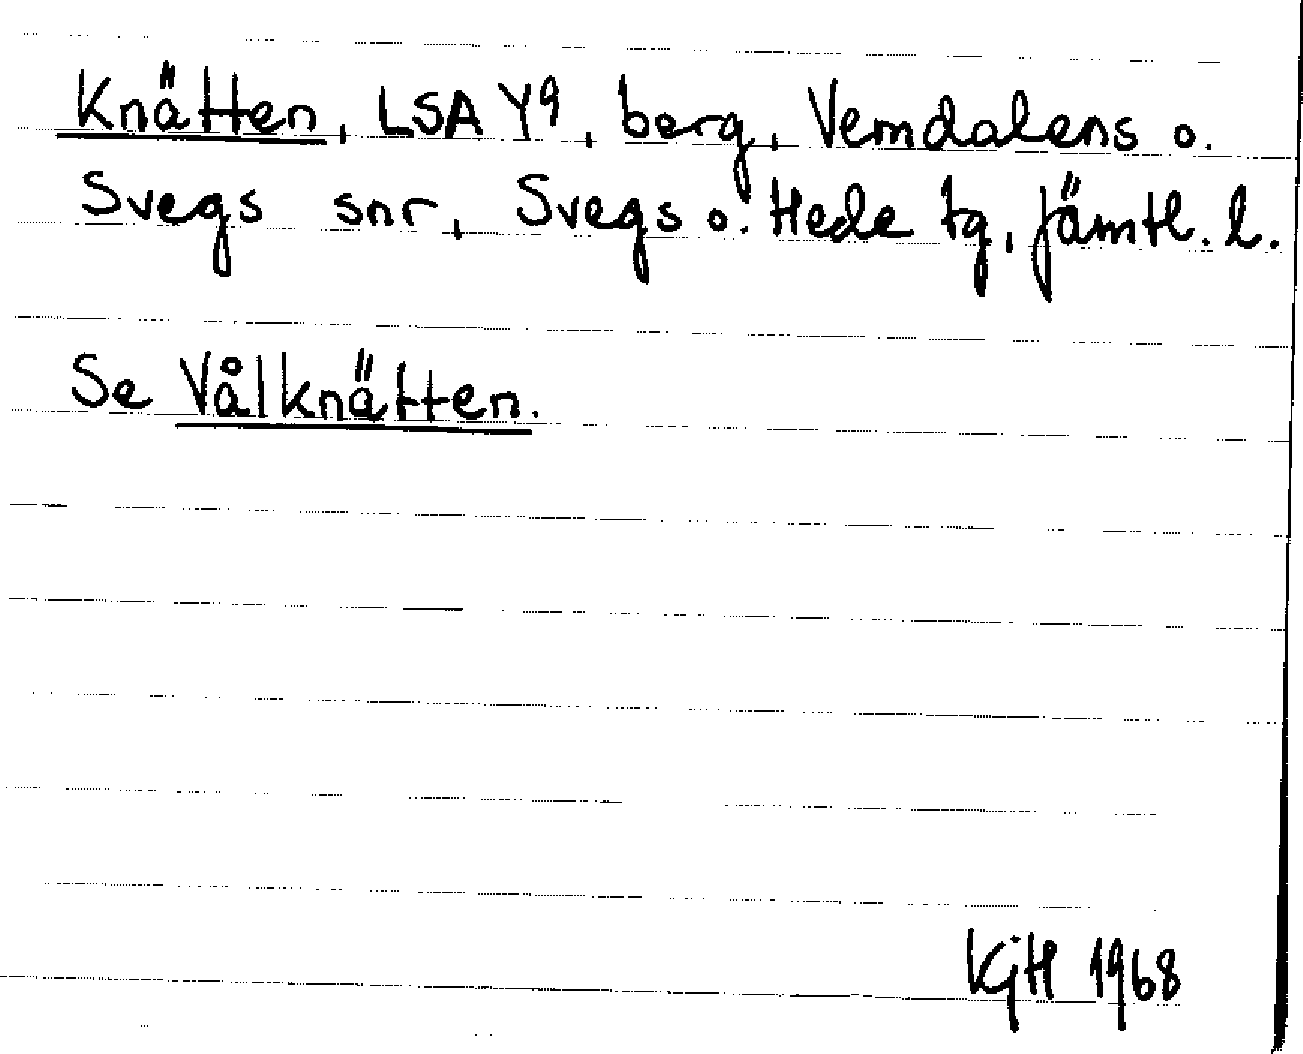 Knätten, LSA Y9, berg, Vemdalens o.
Svegs snr, Svegs o. Hede tg, Jämtl. l.
Se Vålknätten.
KGH 1968